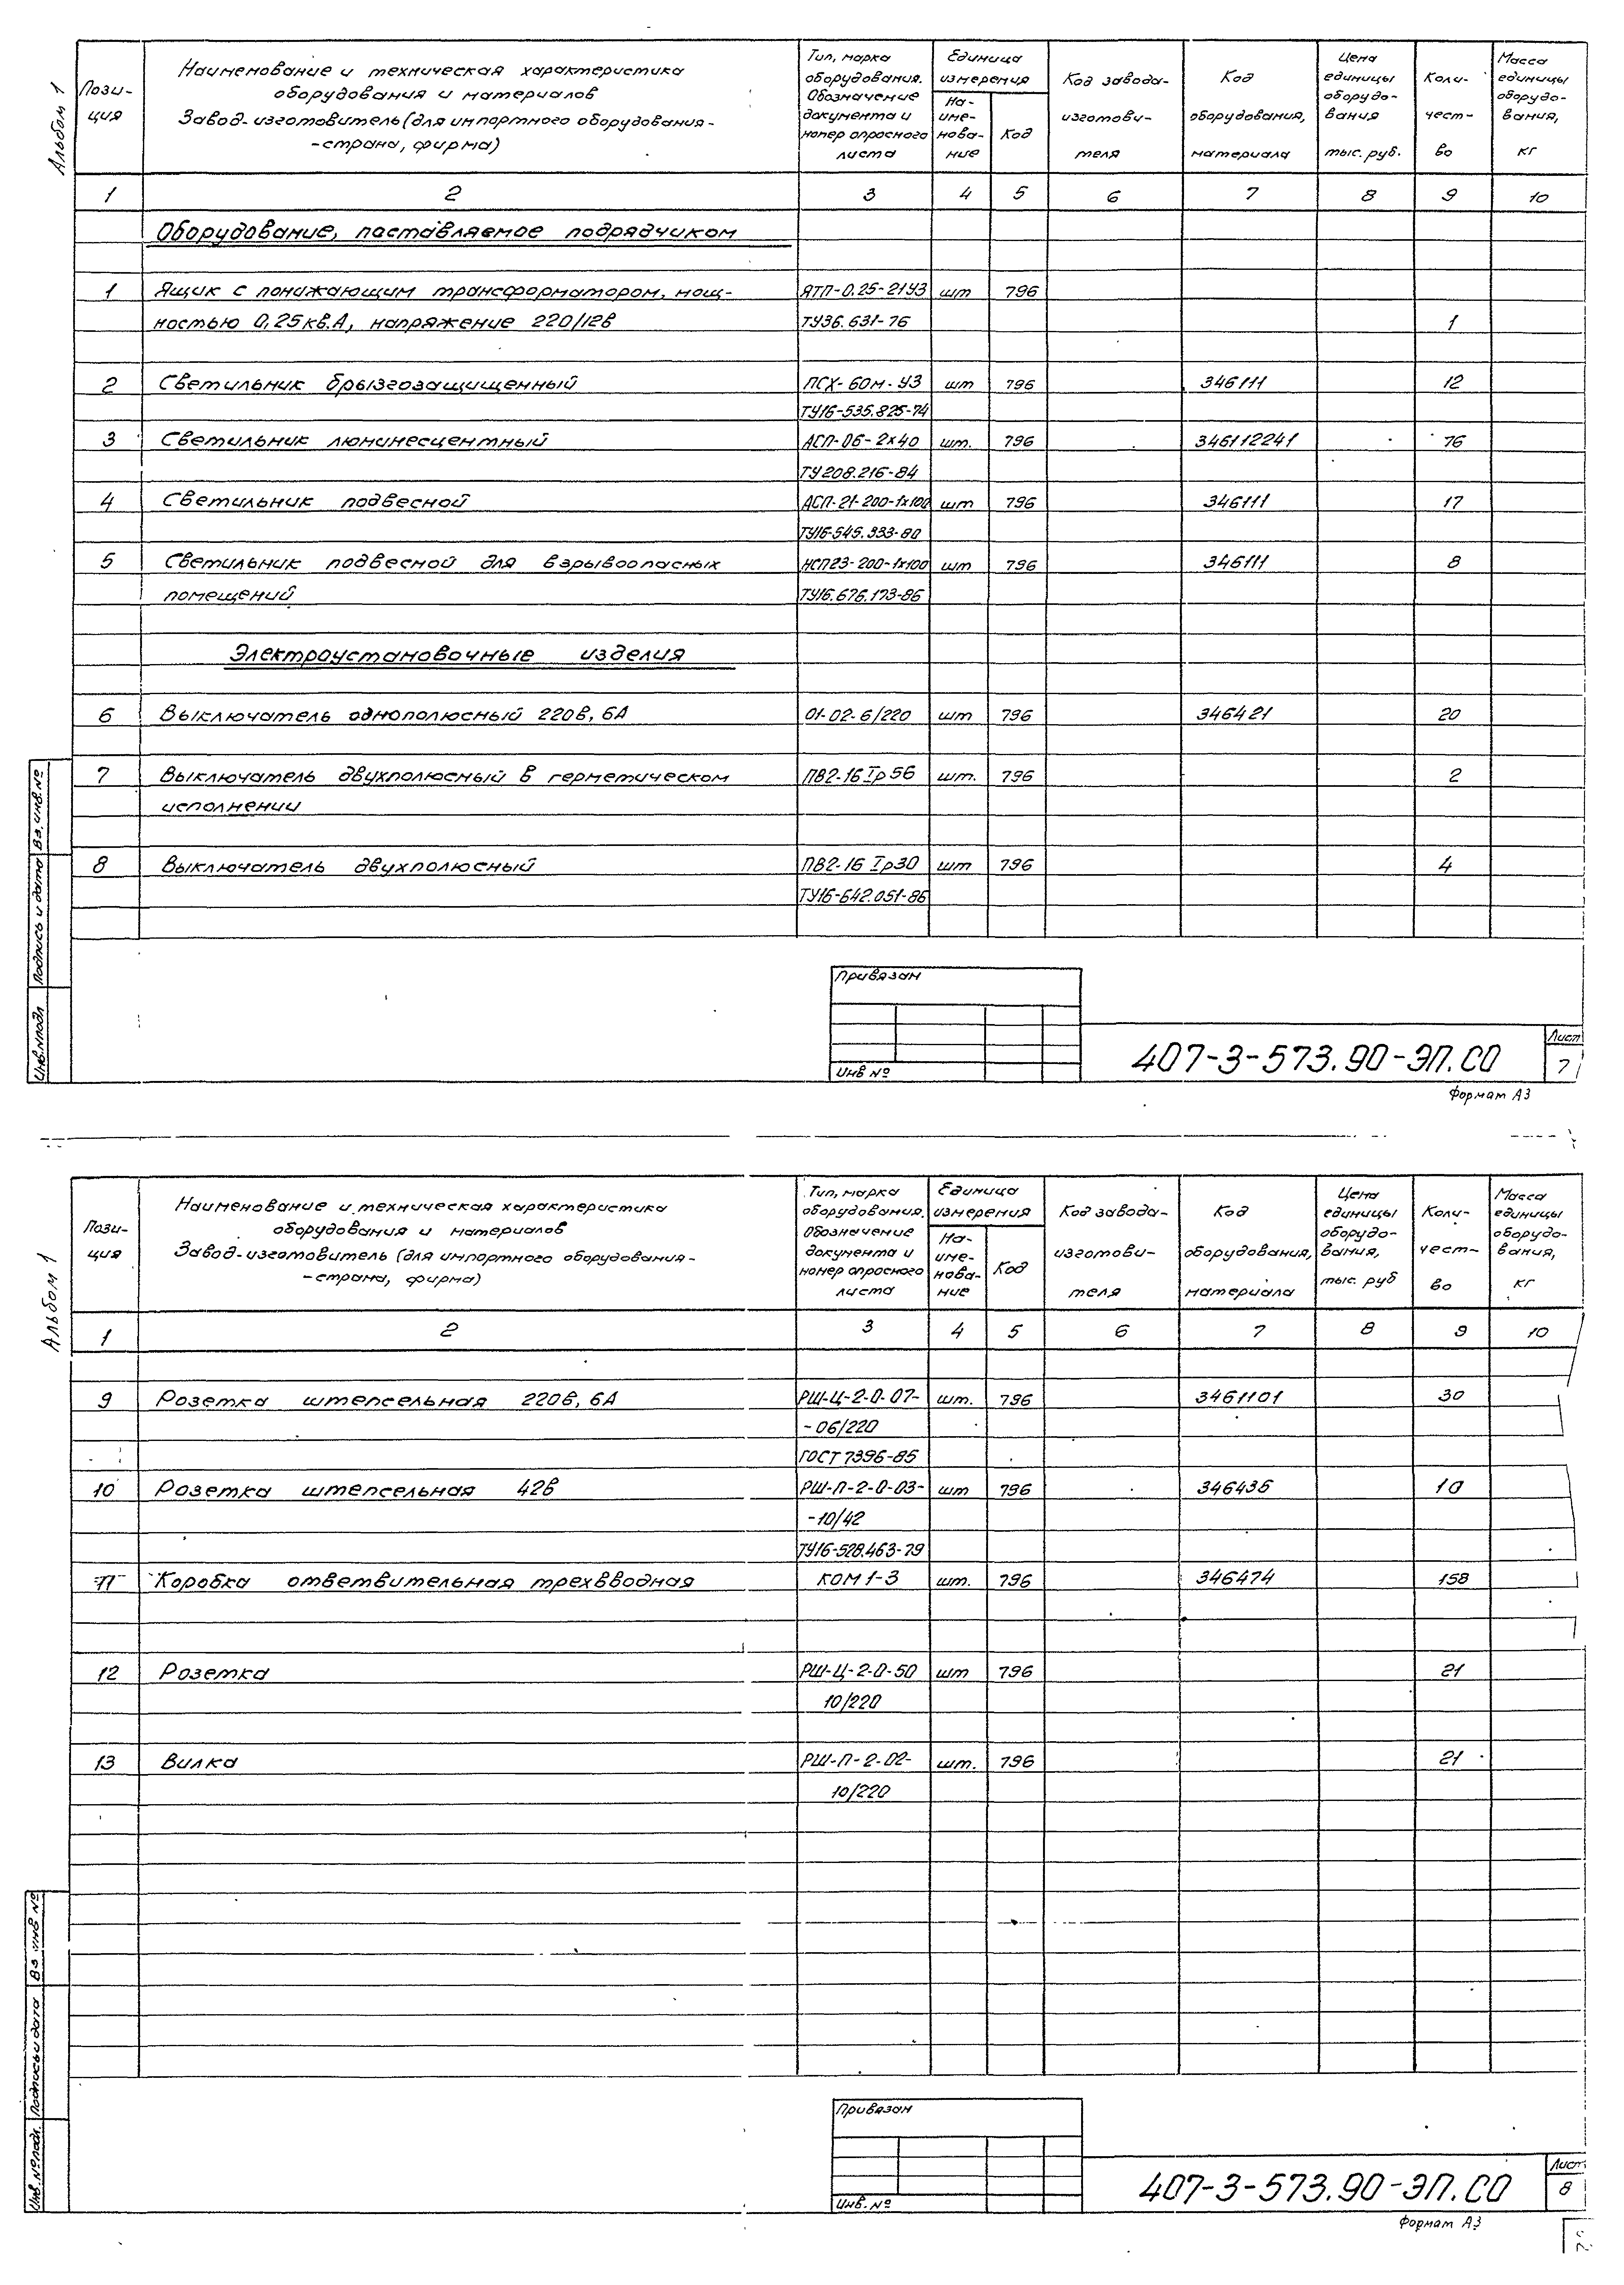 Альбом 1
Пози-
ция
Наименование и техническая характеристика
оборудования и материалов
Завод-изготовитель (для импортного оборудования-
-страна, фирма)
Тип, марка
оборудования.
Обозначение
документа и
номер опросного
листа
Единица
измерения
На-
име-
нова-
ние
Код
Код завода-
изготови-
теля
Код
оборудования,
материала
Цена
единицы
оборудо-
вания
тыс. руб.
Коли-
чест-
во
Масса
единицы
оборудо-
вания,
кг
1 2 3 4 5 6 7 8 9 10
Оборудование, поставляемое подрядчиком
1 Ящик с понижающим трансформатором, мощ- ЯТП-0.25-21У3 шт 796
ностью 0,25кв.А, напряжение 220/12в ТУ36.631-76 1
2 Светильник брызгозащищенный ПСХ-60м-У3 шт 796 346111 12
ТУ16-535.825-74
3 Светильник люминесцентный АСП-06-2х40 шт. 796 346112241 76
ТУ208.216-84
4 Светильник подвесной АСП-21-200-1х100 шт 796 346111 17
ТУ16-545.333-80
5 Светильник подвесной для взрывоопасных НСП23-200-1х100 шт 796 346111 8
помещений ТУ16.676.173-86
Электроустановочные изделия
6 Выключатель однополюсный 220в, 6А 01-02-6/220 шт 796 346421 20
7 Выключатель двухполюсный в герметическом ПВ2-16 Iр56 шт. 796 2
исполнении
8 Выключатель двухполюсный ПВ2-16 Iр30 шт 796 4
ТУ16-642.051-86
Вз. инв. №
Подпись и дата
Инв.№подл
Привязан
Инв №
407-3-573.90-ЭП.СО
Лист
7
Формат А3
Альбом 1
Пози-
ция
Наименование и техническая характеристика
оборудования и материалов
Завод-изготовитель (для импортного оборудования-
-страна, фирма)
Тип, марка
оборудования.
Обозначение
документа и
номер опросного
листа
Единица
измерения
На-
име-
нова-
ние
Код
Код завода-
изготови-
теля
Код
оборудования,
материала
Цена
единицы
оборудо-
вания,
тыс. руб
Коли-
чест-
во
Масса
единицы
оборудо-
вания,
кг
1 2 3 4 5 6 7 8 9 10
9 Розетка штепсельная 220в, 6А РШ-Ц-2-0-07- шт. 796 3461101 30
-06/220
ГОСТ 7396-85
10 Розетка штепсельная 42в РШ-П-2-0-03- шт 796 346435 10
-10/42
ТУ16-528.463-79
11 Коробка ответвительная трехвводная КОМ1-3 шт. 796 346474 158
12 Розетка РШ-Ц-2-0-50 шт 796 21
10/220
13 Вилка РШ-П-2-02- шт. 796 21
10/220
Вз инв №
Подпись и дата
Инв.№подл.
Привязан
Инв. №
407-3-573.90-ЭП.СО
Лист
8
Формат А3